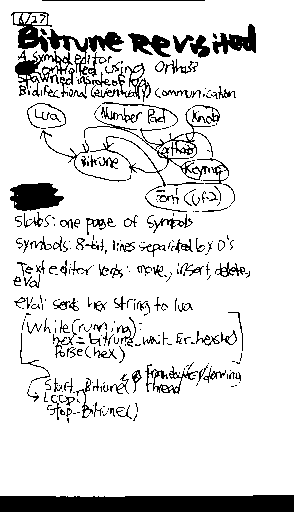 6/27
Bitrune Revisited
A symbol editor
controlled using Orthoss
spawned inside of lua
Bidirectional (eventually) communication
Lua
Number Pad
Knob
Bitrune
Keymap
font (uf2)
Slabs: one page of symbols
Symbols: 8-bit, lines separated by 0's
Text editor verbs: move, insert, delete,
eval
eval: sends hex string to lua
while(running):
hex = bitrune_wait_for_hexstr()
Parse(hex)
Start_Bitrune()
thread
Loop()
Stop-Bitrune()